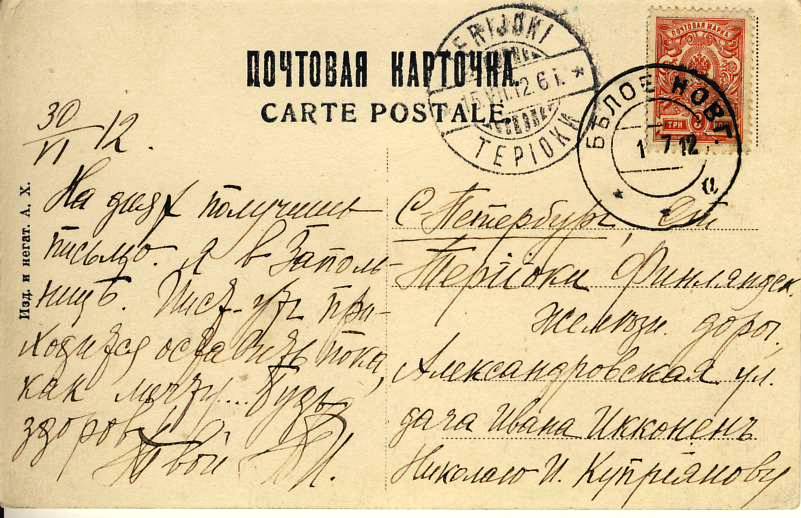 ПОЧТОВАЯ КАРТОЧКА.
CARTE POSTALE.
TERIJOKI
15.VII.12. 6 i.
ТЕРІОКИ
ПОЧТОВАЯ МАРКА
ТРИ 3
БѢЛОЕ НОВГ.
7 12
а
Изд. и негат. А. Х.
30/VI 12.
На днях получишь
письмо. Я в Заполь-
при-
ходится оставить пока,
как ... будь
здоров!
Твой
С Петербургъ, Ст
Теріоки Финляндск.
желѣзн. дорог.
Александровская ул.
дача Ивана Икконенъ
Николаю И. Купріянову